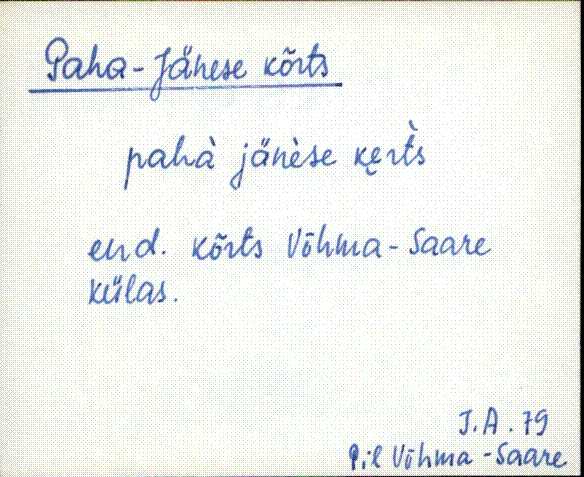 Paha-Jänese kõrts
pahà jänèse kẹrt̀s
end. kõrts Võhma-Saare
külas.
J.A. 79
Pil Võhma-Saare